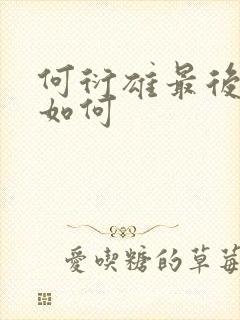 何衍雄最後
如何
愛喫糖的草莓